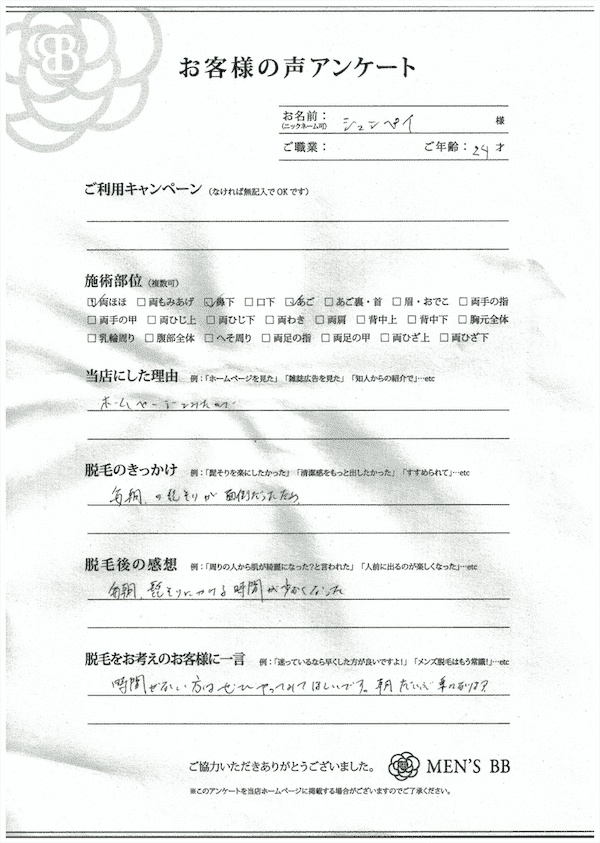 お客様の声アンケート
お名前： シュンペイ 様
(ニックネーム可)
ご職業： ご年齢：24才
ご利用キャンペーン（なければ無記入でOKです）
施術部位（複数可）
☑両ほほ □両もみあげ ☑鼻下 □口下 ☑あご □あご裏・首 □眉・おでこ □両手の指
□両手の甲 □両ひじ上 □両ひじ下 □両わき □両肩 □背中上 □背中下 □胸元全体
□乳輪周り □腹部全体 □へそ周り □両足の指 □両足の甲 □両ひざ上 □両ひざ下
当店にした理由 例：「ホームページを見た」「雑誌広告を見た」「知人からの紹介で」…etc
ホームページをみたから
脱毛のきっかけ 例：「髭そりを楽にしたかった」「清潔感をもっと出したかった」「すすめられて」…etc
毎朝、の髭そりが面倒だったから
脱毛後の感想 例：「周りの人から肌が綺麗になった？と言われた」「人前に出るのが楽しくなった」…etc
毎朝、髭そりにかける時間が少なくなった
脱毛をお考えのお客様に一言 例：「迷っているなら早くした方が良いですよ！」「メンズ脱毛はもう常識！」…etc
時間がない方はぜひやってみてほしいです。朝
ご協力いただきありがとうございました。 MEN'S BB
※このアンケートを当店ホームページに掲載する場合がございますのでご了承ください。